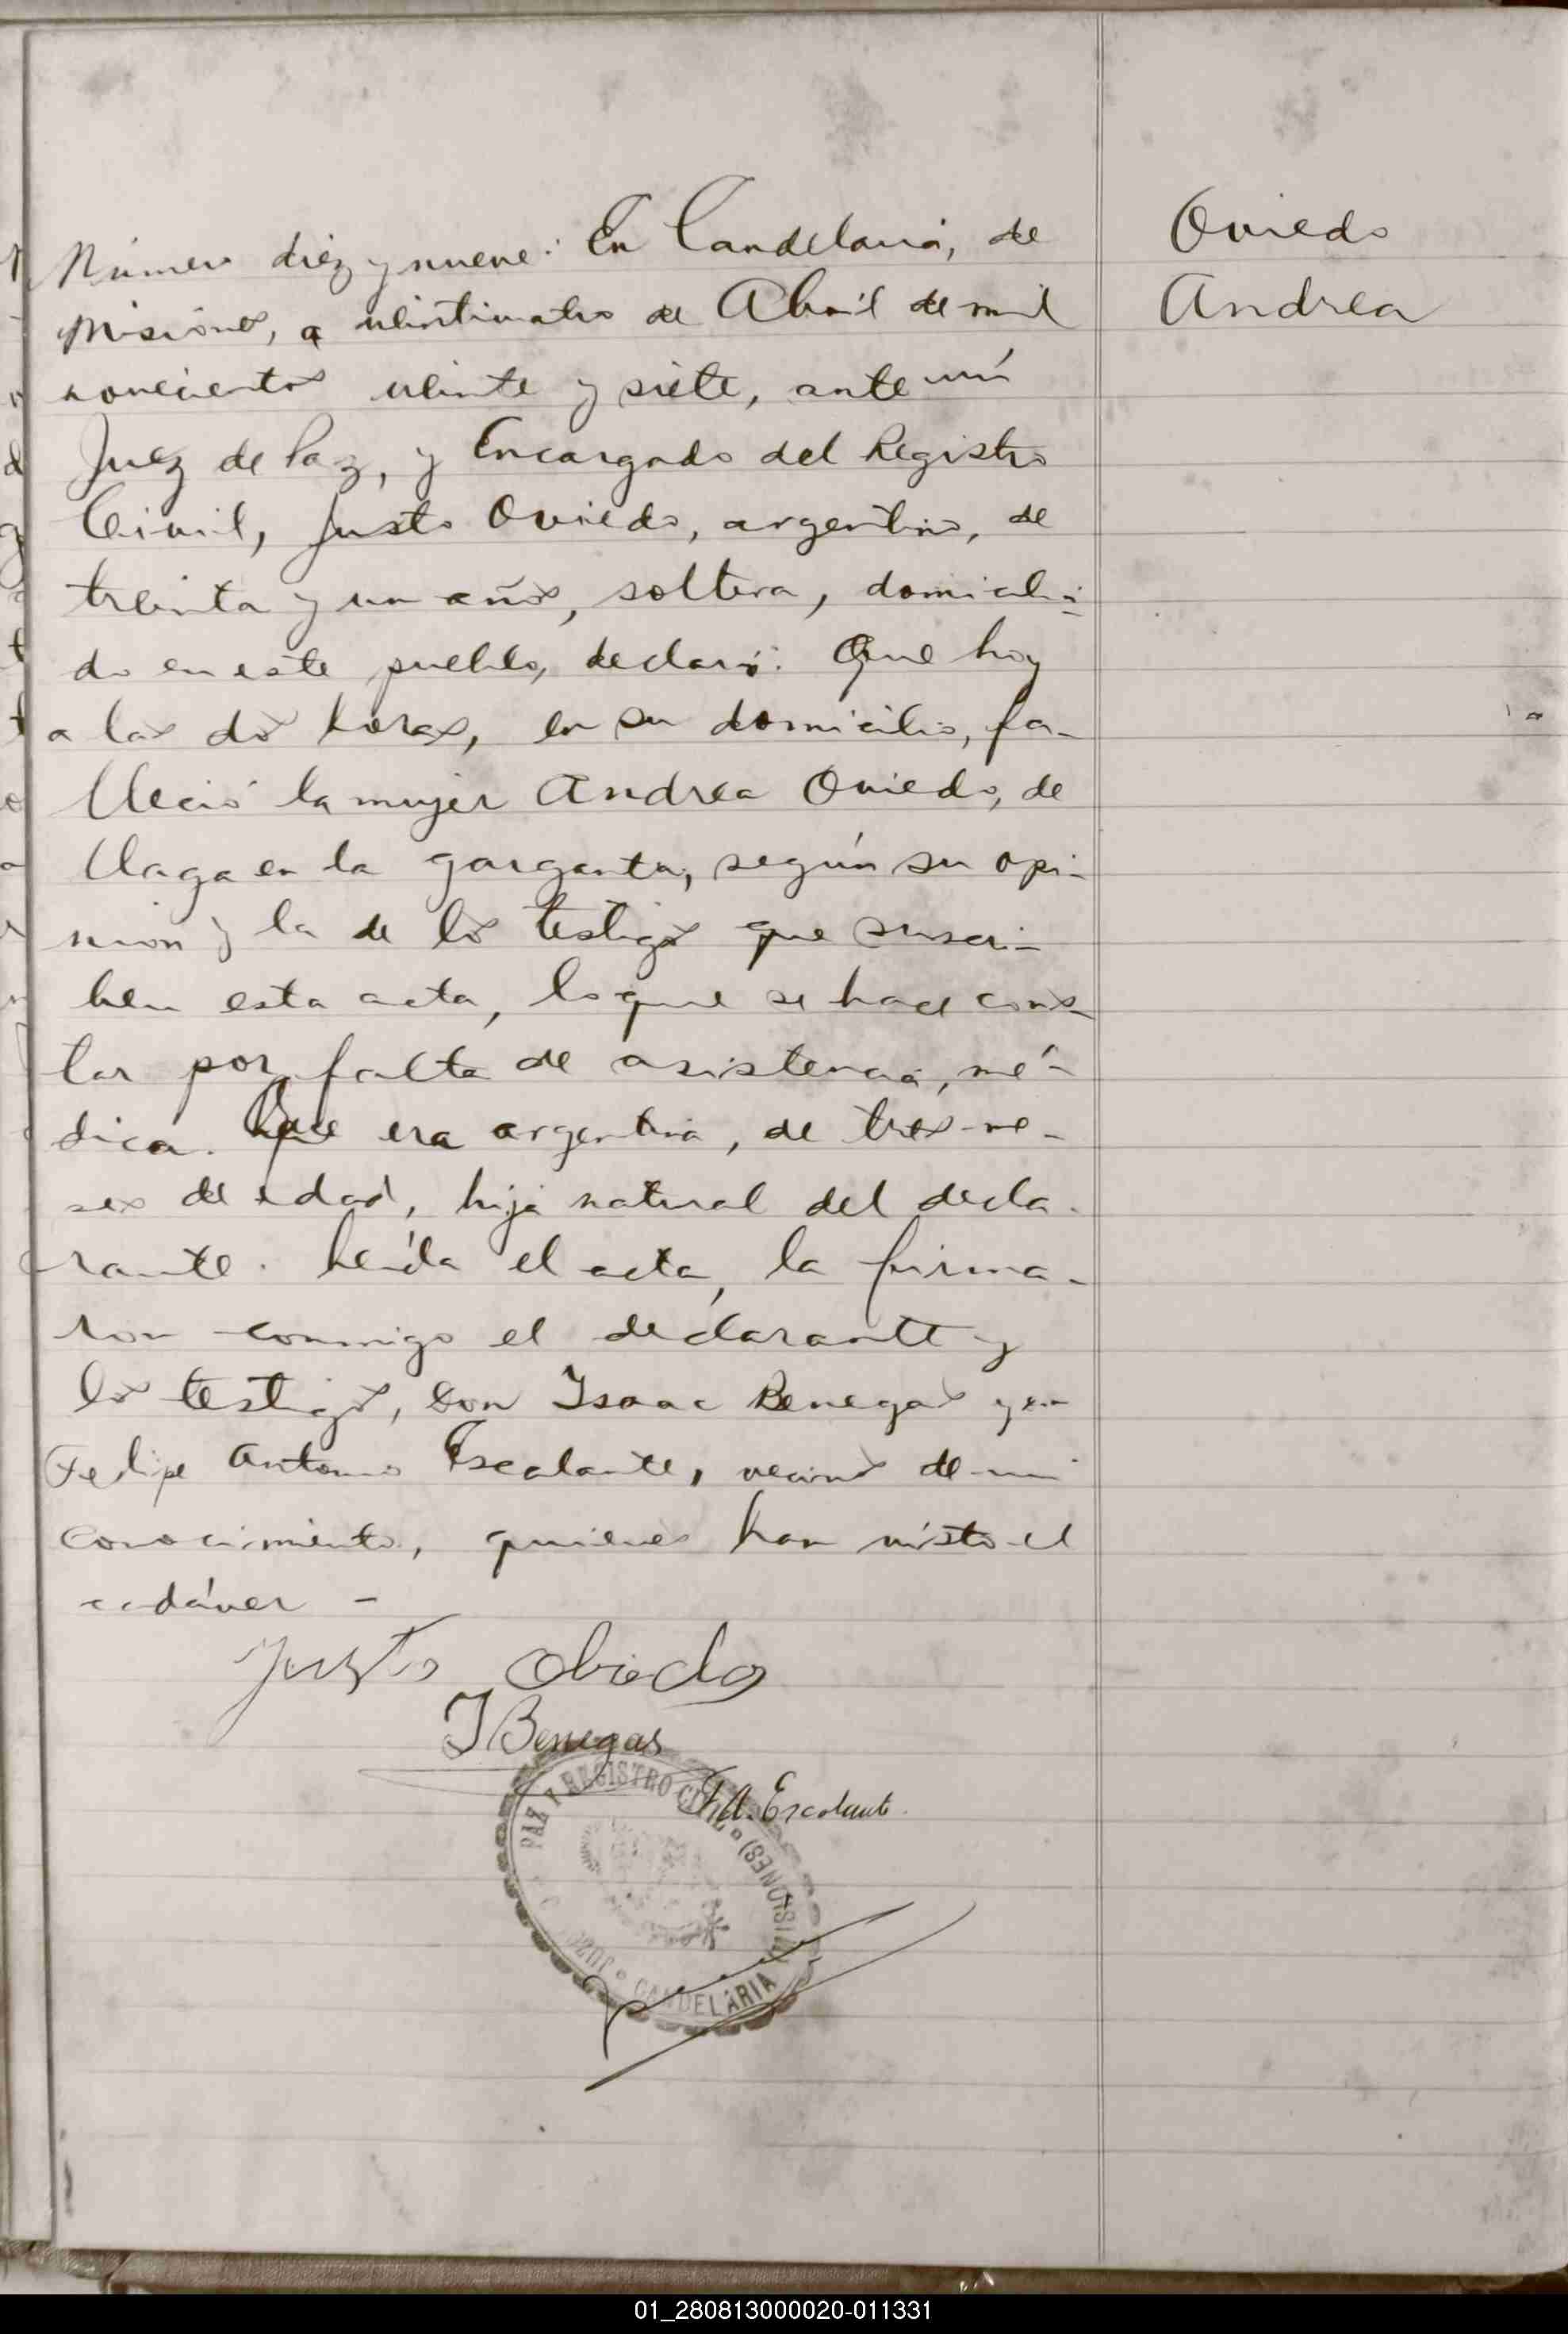 Oviedo
Andrea
Número diez y nueve: En Candelaria, de
Misiones, a veinticuatro de Abril de mil
novecientos veinte y siete, ante mí
Juez de Paz, y Encargado del Registro
Civil, Justo Oviedo, argentino, de
treinta y un años, soltero, domicilia=
do en este pueblo, declaró: Que hoy
a las dos horas, en su domicilio, fa-
lleció la mujer Andrea Oviedo, de
llaga en la garganta, según su opi-
nión y la de los testigos que suscri-
ben esta acta, lo que se hace cons-
tar por falta de asistencia, mé-
dica. Que era argentina, de tres me-
ses de edad, hija natural del decla-
rante. Leída el acta, la firma-
ron conmigo el declarante y
los testigos, Don Isaac Benegas y
Felipe Antonio Escalante, vecinos de mi
conocimiento, quienes han visto el
cadáver -
Justo Obiedo
I Benegas
F. A. Escalante.
PAZ Y REGISTRO CIVIL
JUZG
CANDELARIA (MISIONES)
01_280813000020-011331